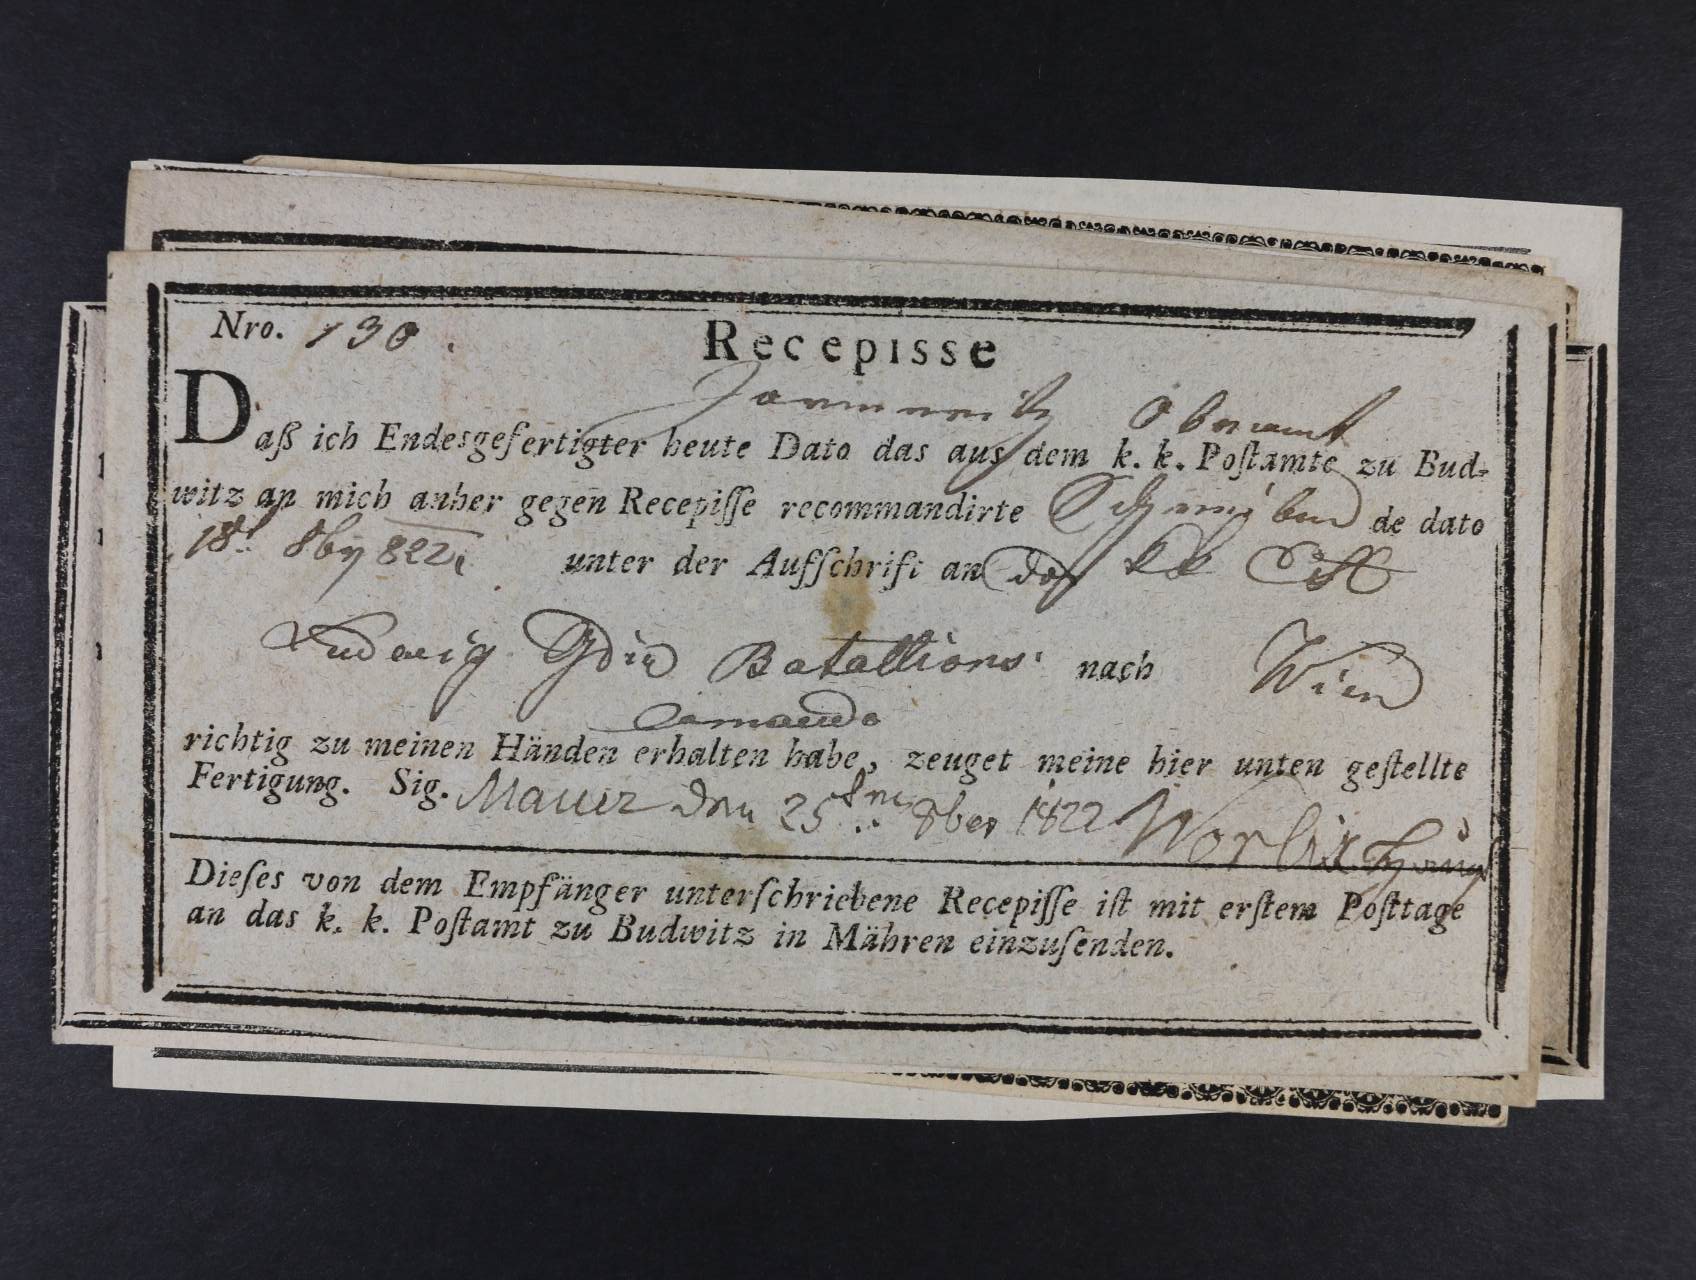 Nro. 130.
Recepisse
Jarmeritz Oberamt
Daß ich Endesgefertigter heute Dato das aus dem k. k. Poſtamte zu Bud-
witz an mich anher gegen Recepiſſe recommandirte Schreiben de dato
18t 8br 822 unter der Aufſchrift an das kk
Ludwig Batallions nach Wien
Comando
richtig zu meinen Händen erhalten habe, zeuget meine hier unten geſtellte
Fertigung. Sig. Mauer den 25ten 8ber 1822
Dieſes von dem Empfänger unterſchriebene Recepiſſe iſt mit erſtem Poſttage
an das k. k. Poſtamt zu Budwitz in Mähren einzuſenden.